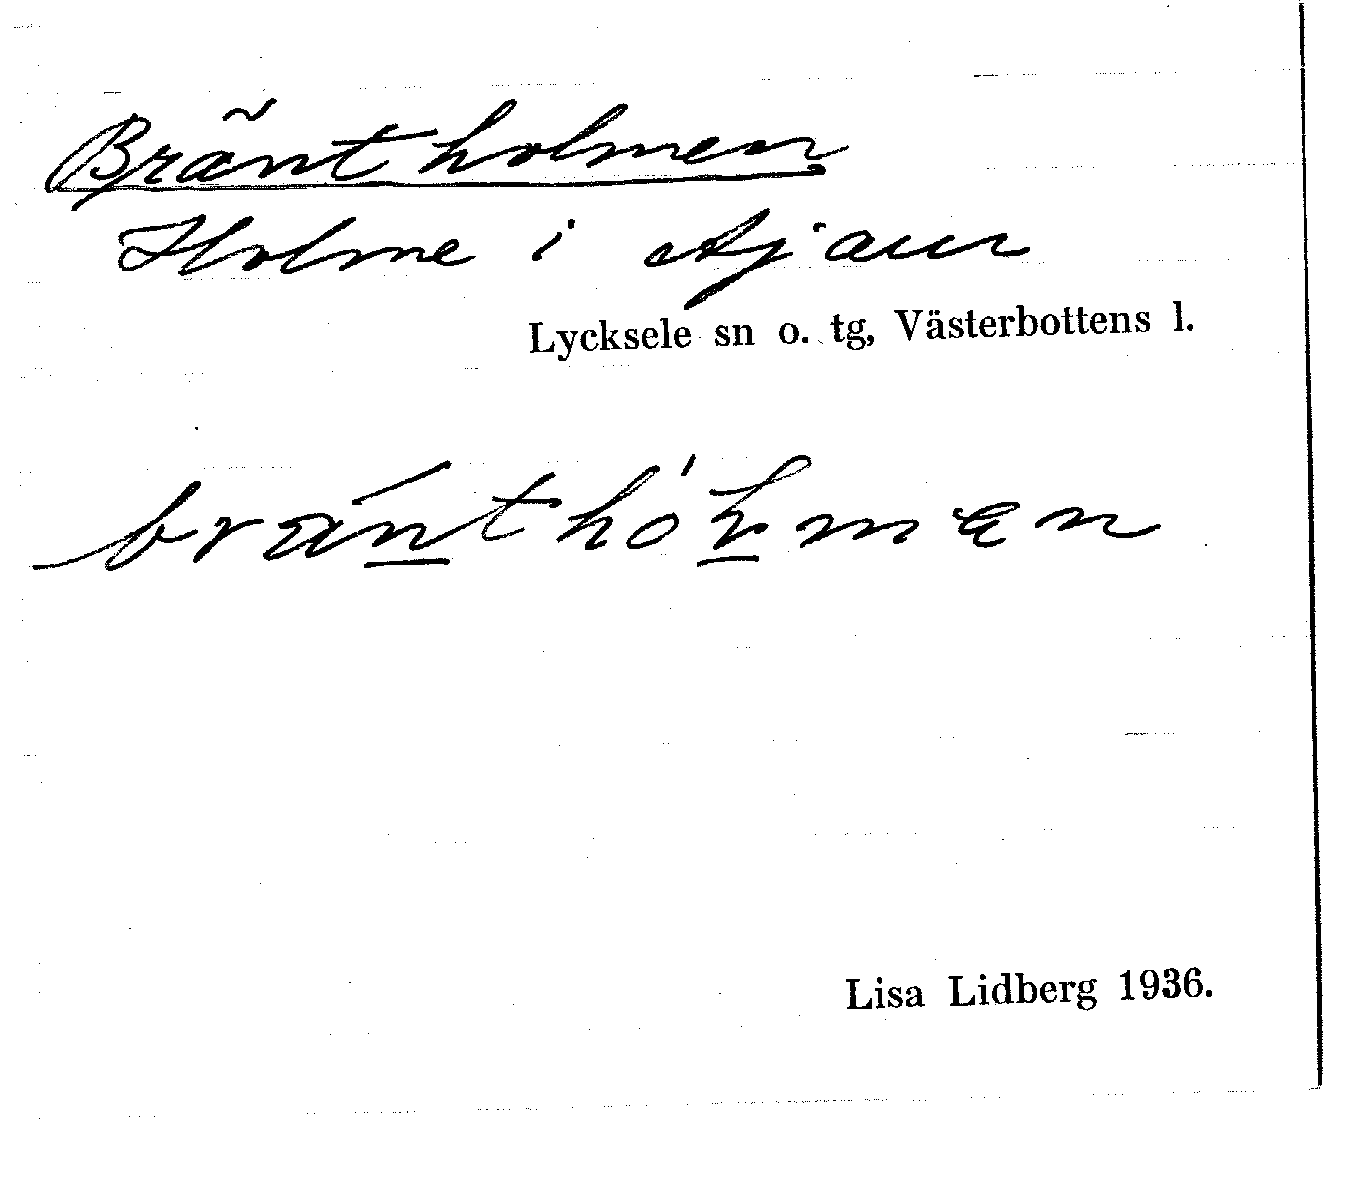 Bräntholmen
Holme i Ajaur
Lycksele sn o. tg, Västerbottens l.
Lisa Lidberg 1936.